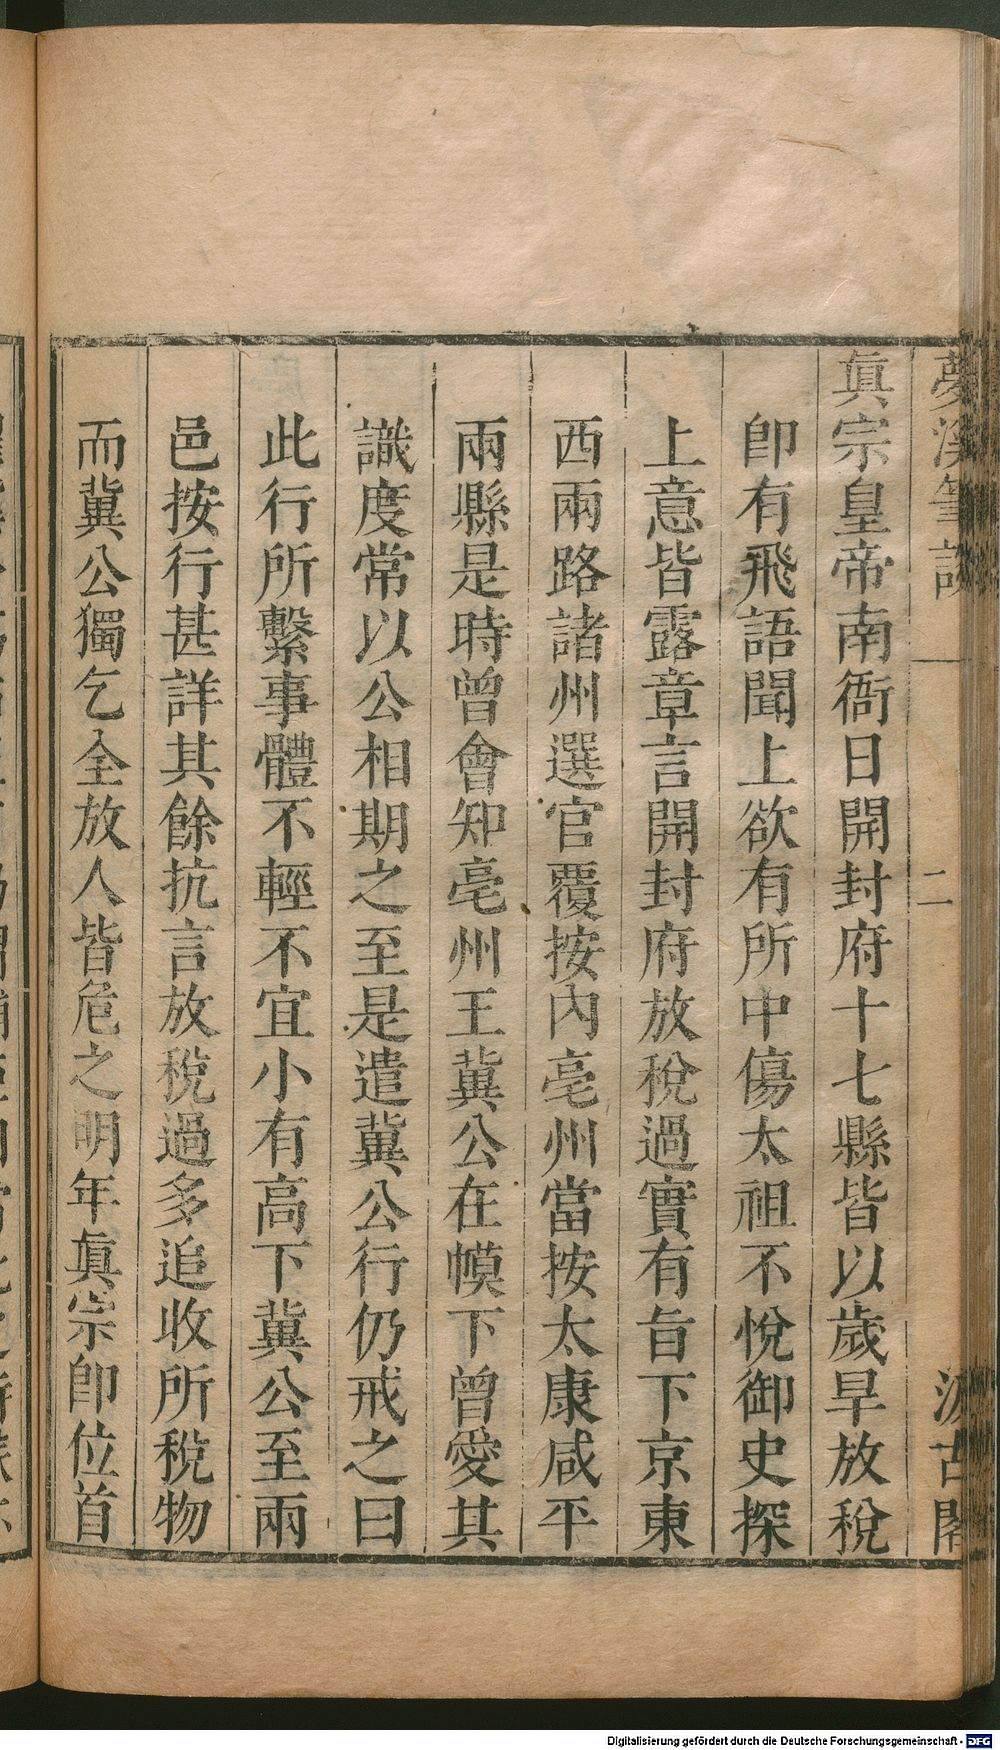 夢溪筆談 二 汲古閣
眞宗皇帝南衙日開封府十七縣皆以歲旱放稅
卽有飛語聞上欲有所中傷太祖不悅御史探
上意皆露章言開封府放稅過實有旨下京東
西兩路諸州選官覆按內亳州當按太康咸平
兩縣是時曾會知亳州王冀公在幙下曾愛其
識度常以公相期之至是遣冀公行仍戒之曰
此行所繫事體不輕不宜小有高下冀公至兩
邑按行甚詳其餘抗言放稅過多追收所稅物
而冀公獨乞全放人皆危之明年眞宗卽位首
Digitalisierung gefördert durch die Deutsche Forschungsgemeinschaft - DFG